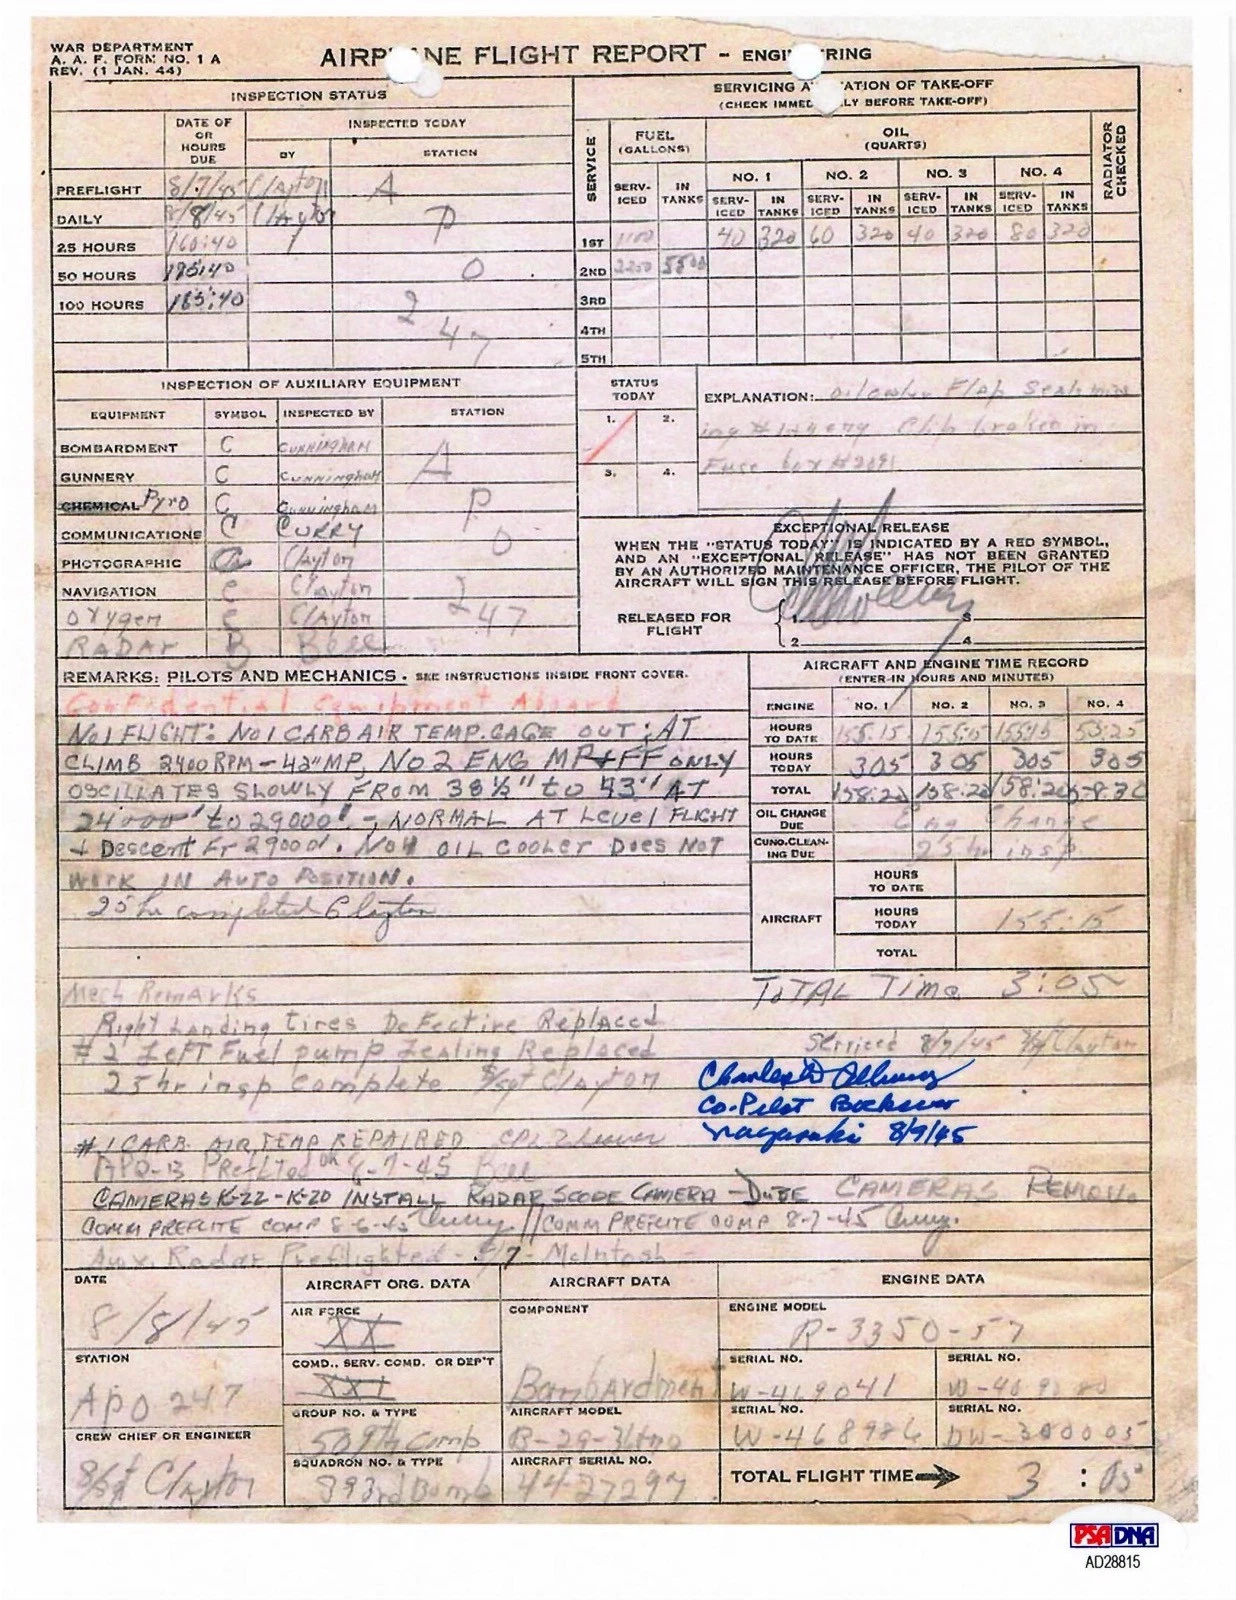 WAR DEPARTMENT
A. A. F. FORM NO. 1 A
REV. (1 JAN. 44)
AIRP NE FLIGHT REPORT - ENGI RING
INSPECTION STATUS
DATE OF OR HOURS DUE
INSPECTED TODAY
BY
STATION
PREFLIGHT 8/7/45 Clayton A
DAILY 8/8/45 Clayton P
25 HOURS 160:40
50 HOURS 185:40 O
100 HOURS 185:40 2
47
SERVICING A ATION OF TAKE-OFF
(CHECK IMMED LY BEFORE TAKE-OFF)
SERVICE
FUEL (GALLONS)
OIL (QUARTS)
RADIATOR CHECKED
NO. 1 NO. 2 NO. 3 NO. 4
SERV-ICED IN TANKS SERV-ICED IN TANKS SERV-ICED IN TANKS SERV-ICED IN TANKS SERV-ICED IN TANKS
1ST 1100 40 320 60 320 40 320 80 320
2ND 2200 5500
3RD
4TH
5TH
INSPECTION OF AUXILIARY EQUIPMENT
EQUIPMENT SYMBOL INSPECTED BY STATION
BOMBARDMENT C CUNNINGHAM
GUNNERY C CUNNINGHAM A
CHEMICAL Pyro C Cunningham P
COMMUNICATIONS C CURRY O
PHOTOGRAPHIC Clayton
NAVIGATION C Clayton 2
Oxygen C Clayton 47
RADAR B Bell
STATUS TODAY
1. 2.
3. 4.
EXPLANATION: Flap Seal
Clip broken in
Fuse box #2091
EXCEPTIONAL RELEASE
WHEN THE "STATUS TODAY" IS INDICATED BY A RED SYMBOL,
AND AN "EXCEPTIONAL RELEASE" HAS NOT BEEN GRANTED
BY AN AUTHORIZED MAINTENANCE OFFICER, THE PILOT OF THE
AIRCRAFT WILL SIGN THIS RELEASE BEFORE FLIGHT.
RELEASED FOR FLIGHT
1 3
2 4
REMARKS: PILOTS AND MECHANICS - SEE INSTRUCTIONS INSIDE FRONT COVER.
Confidential Equipment Aboard
NO1 FLIGHT: NO1 CARB AIR TEMP. GAGE OUT; AT
CLIMB 2400 RPM - 42"MP, NO2 ENG MP+FF ONLY
OSCILLATES SLOWLY FROM 38½" to 43" AT
24000' to 29000' - NORMAL AT LEVEL FLIGHT
+ Descent Fr 29000'. No4 OIL COOLER DOES NOT
WORK IN AUTO POSITION.
25 hr completed Clayton
AIRCRAFT AND ENGINE TIME RECORD
(ENTER IN HOURS AND MINUTES)
ENGINE NO. 1 NO. 2 NO. 3 NO. 4
HOURS TO DATE 155:15 155:15 155:15 55:25
HOURS TODAY 305 305 305 305
TOTAL 158:20 158:20 158:20 58:30
OIL CHANGE DUE Eng Change
CUNO. CLEANING DUE 25 hr insp.
AIRCRAFT
HOURS TO DATE
HOURS TODAY 155:15
TOTAL
TOTAL Time 3:05
Mech Remarks
Right Landing tires Defective Replaced
#2 Left Fuel pump Replaced
25 hr insp Complete S/sgt Clayton
Serviced 8/7/45 Clayton
Co-Pilot Bockscar
Nagasaki 8/9/45
#1 CARB. AIR TEMP REPAIRED CPL
APQ-13 Preflited on 8-7-45 Bell
CAMERAS K-22 - K-20 INSTALL RADAR SCOPE CAMERA - CAMERAS Remov
COMM PREFLITE COMP 8-6-45 Curry. // COMM PREFLITE COMP 8-7-45 Curry.
Aux. Radar Preflighted - 8/7 - McIntosh -
DATE
8/8/45
STATION
APO 247
CREW CHIEF OR ENGINEER
S/Sgt Clayton
AIRCRAFT ORG. DATA
AIR FORCE
XX
COMD., SERV. COMD. OR DEP'T
XXI
GROUP NO. & TYPE
509th Comp
SQUADRON NO. & TYPE
393rd Bomb
AIRCRAFT DATA
COMPONENT
Bombardment
AIRCRAFT MODEL
B-29-36mo
AIRCRAFT SERIAL NO.
44-27297
ENGINE DATA
ENGINE MODEL
R-3350-57
SERIAL NO. SERIAL NO.
W-469041
SERIAL NO. SERIAL NO.
W-468986 DW-300005
TOTAL FLIGHT TIME 3 : 05
PSA DNA
AD28815